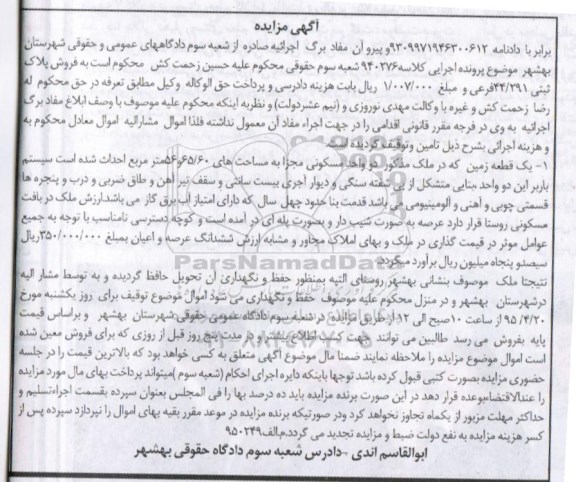 آگهی مزایده
برابر با دادنامه ۹۳۰۹۹۷۱۹۴۶۳۰۰۶۱۲ و پیرو آن مفاد برگ اجرائیه صادره از شعبه سوم دادگاههای عمومی و حقوقی شهرستان
بهشهر موضوع پرونده اجرایی کلاسه ۹۴۰۲۷۶ شعبه سوم حقوقی محکوم علیه حسین زحمت کش محکوم است به فروش پلاک
ثبتی ۴۴/۲۹۱ فرعی و مبلغ ۱/۰۰۷/۰۰۰ ریال بابت هزینه دادرسی و پرداخت حق الوکاله وکیل مطابق تعرفه در حق محکوم له
رضا زحمت کش و غیره با وکالت مهدی نوروزی و (نیم عشر دولت) و نظر به اینکه محکوم علیه موصوف با وصف ابلاغ مفاد برگ
اجرائیه به وی در فرجه مقرر قانونی اقدامی را در جهت اجراء مفاد آن معمول نداشته فلذا اموال مشارالیه اموال معادل محکوم به
و هزینه اجرائی بشرح ذیل تامین و توقیف گردیده است
۱- یک قطعه زمین که در ملک مذکور دو واحد مسکونی مجزا به مساحت های ۶۵/۶۰و۵۶ متر مربع احداث شده است سیستم
باربر این دو واحد بنایی متشکل از پی شفته سنگی و دیوار آجری بیست سانتی و سقف تیر آهن و طاق ضربی و درب و پنجره ها
قسمتی چوبی و آهنی و آلومینیومی می باشد قدمت بنا حدود چهل سال که دارای امتیاز آب برق گاز می باشد ارزش ملک در بافت
مسکونی روستا قرار دارد عرصه به صورت شیب دار و بصورت پله ای در آمده است و کوچه دسترسی نامناسب با توجه به جمیع
عوامل موثر در قیمت گذاری در ملک و بهای املاک مجاور و مشابه ارزش ششدانگ عرصه و اعیان بمبلغ ۳۵۰/۰۰۰/۰۰۰ ریال
سیصدو پنجاه میلیون ریال برآورد میگردد
نتیجتا ملک موصوف بنشانی بهشهر روستای التپه بمنظور حفظ و نگهداری آن تحویل حافظ گردیده و به توسط مشار الیه
درشهرستان بهشهر و در منزل محکوم علیه موصوف حفظ و نگهداری می شود اموال موضوع توقیف برای روز یکشنبه مورخ
۹۵/۴/۲۰ از ساعت ۱۰ صبح الی ۱۲ از طریق مزایده در شعبه سوم دادگاه عمومی حقوقی شهرستان بهشهر و براساس قیمت
پایه بفروش می رسد طالبین می توانند جهت کسب اطلاع بیشتر در مدت پنج روز قبل از روزی که برای فروش معین شده
است اموال موضوع مزایده را ملاحظه نمایند ضمنا مال موضوع آگهی متعلق به کسی خواهد بود که بالاترین قیمت را در جلسه
حضوری مزایده بصورت کتبی قبول کرده باشد توجها باینکه دایره اجرای احکام (شعبه سوم) میتواند پرداخت بهای مال مورد مزایده
را عندالاقتضا بوعده قرار دهد در این صورت برنده مزایده باید ده درصد بها را فی المجلس بعنوان سپرده بقسمت اجراء تسلیم و
حداکثر مهلت مزبور از یکماه تجاوز نخواهد کرد ودر صورتیکه برنده مزایده در موعد مقرر بقیه بهای اموال را نپردازد سپرده پس از
کسر هزینه مزایده به نفع دولت ضبط و مزایده تجدید می گردد.م.الف۹۵۰۲۴۹
ابوالقاسم اندی -دادرس شعبه سوم دادگاه حقوقی بهشهر
ParsNamadData